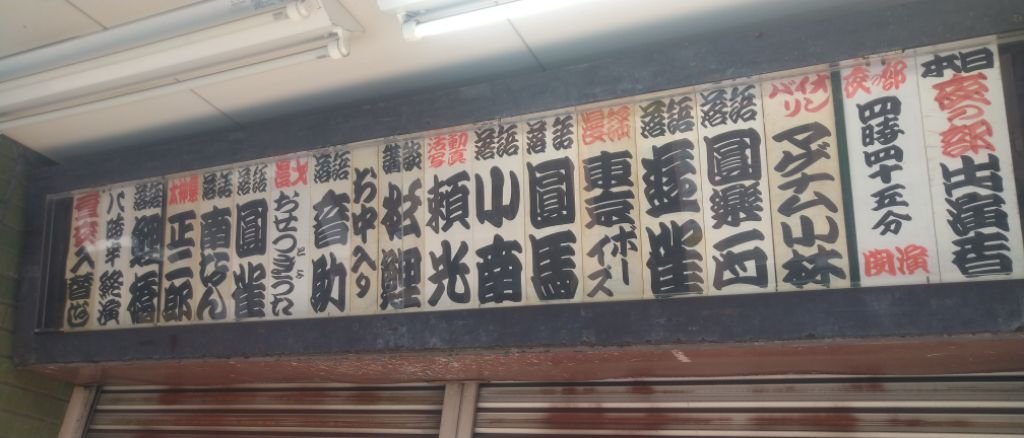 本日夜の部出演者
夜の部 四時四十五分 開演
バイオリン マグナム小林
落語
落語 遊雀
東京ボーイズ
落語 圓馬
落語 小南
活動写真 頼光
講談 松鯉
お中入り
落語 音助
漫才 おせつときょうた
落語 圓雀
落語 南なん
太神楽 正二郎
落語
八時半終演
昼夜入替なし